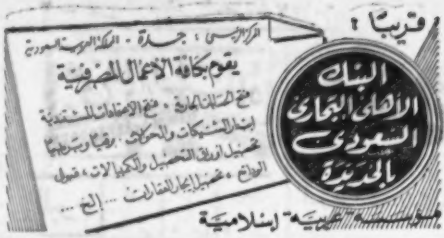 قريبًا :
البنك
الأهلى التجارى
السعودى
بالحديدة
المركز الرئيسى : جدة - المملكة العربية السعودية
يقوم بكافة الأعمال المصرفية
فتح الحسابات الجارية . فتح الاعتمادات المستندية
إصدار الشيكات والحوالات . برقيا وبريديا
تحصيل أوراق التحصيل والكمبيالات ، قبول
الودائع ، تحصيل إيجار العقارات ... إلخ ...
مؤسسة "عربية" إسلامية